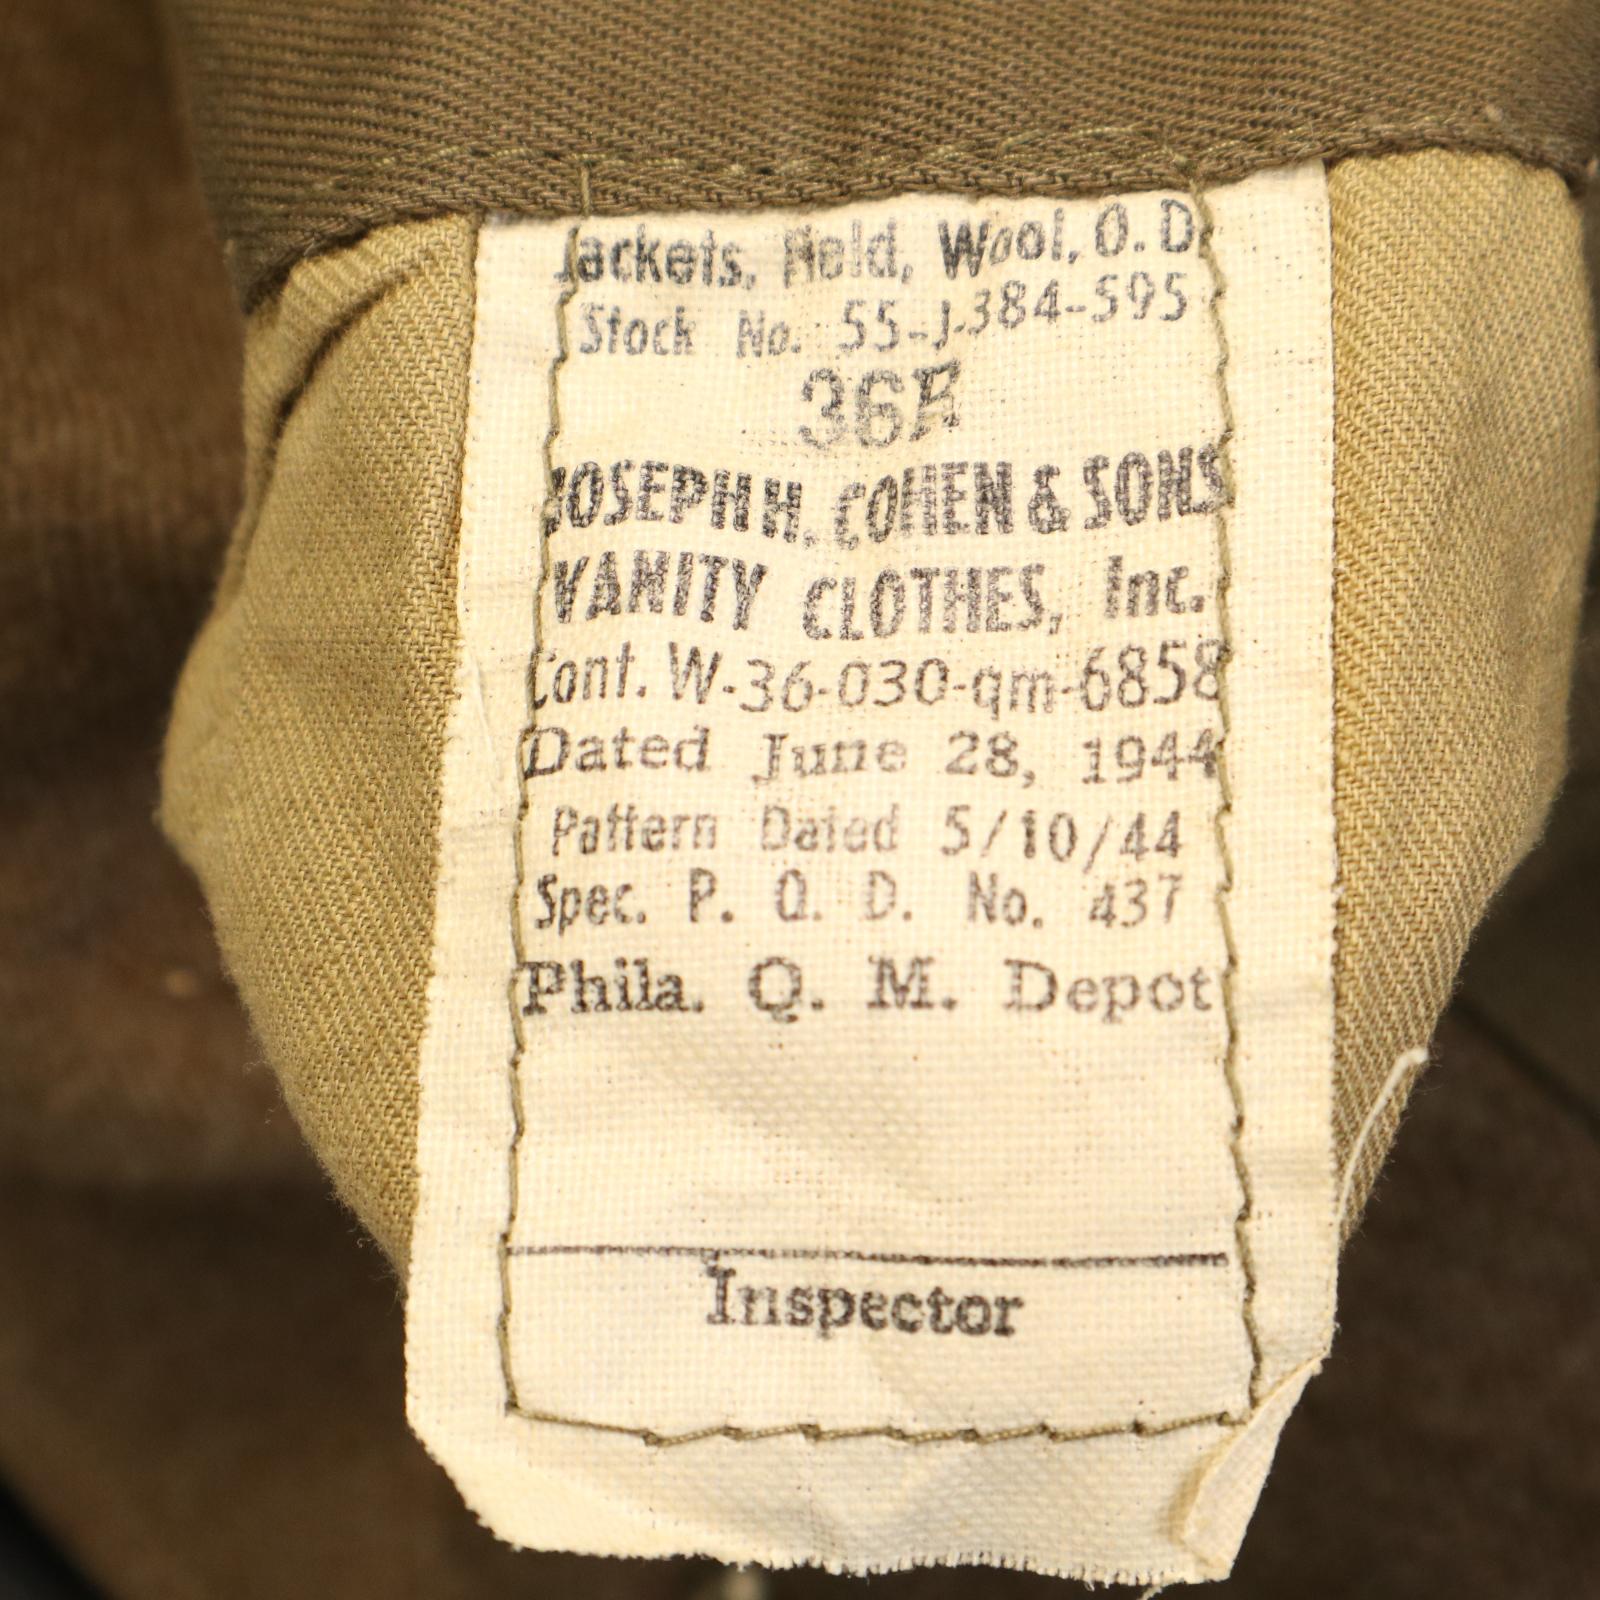 Jackets, Field, Wool, O. D.
Stock No. 55-J-384-595
36R
JOSEPH H. COHEN & SONS
VANITY CLOTHES, Inc.
Cont. W-36-030-qm-6858
Dated June 28, 1944
Pattern Dated 5/10/44
Spec. P. Q. D. No. 437
Phila. Q. M. Depot
Inspector